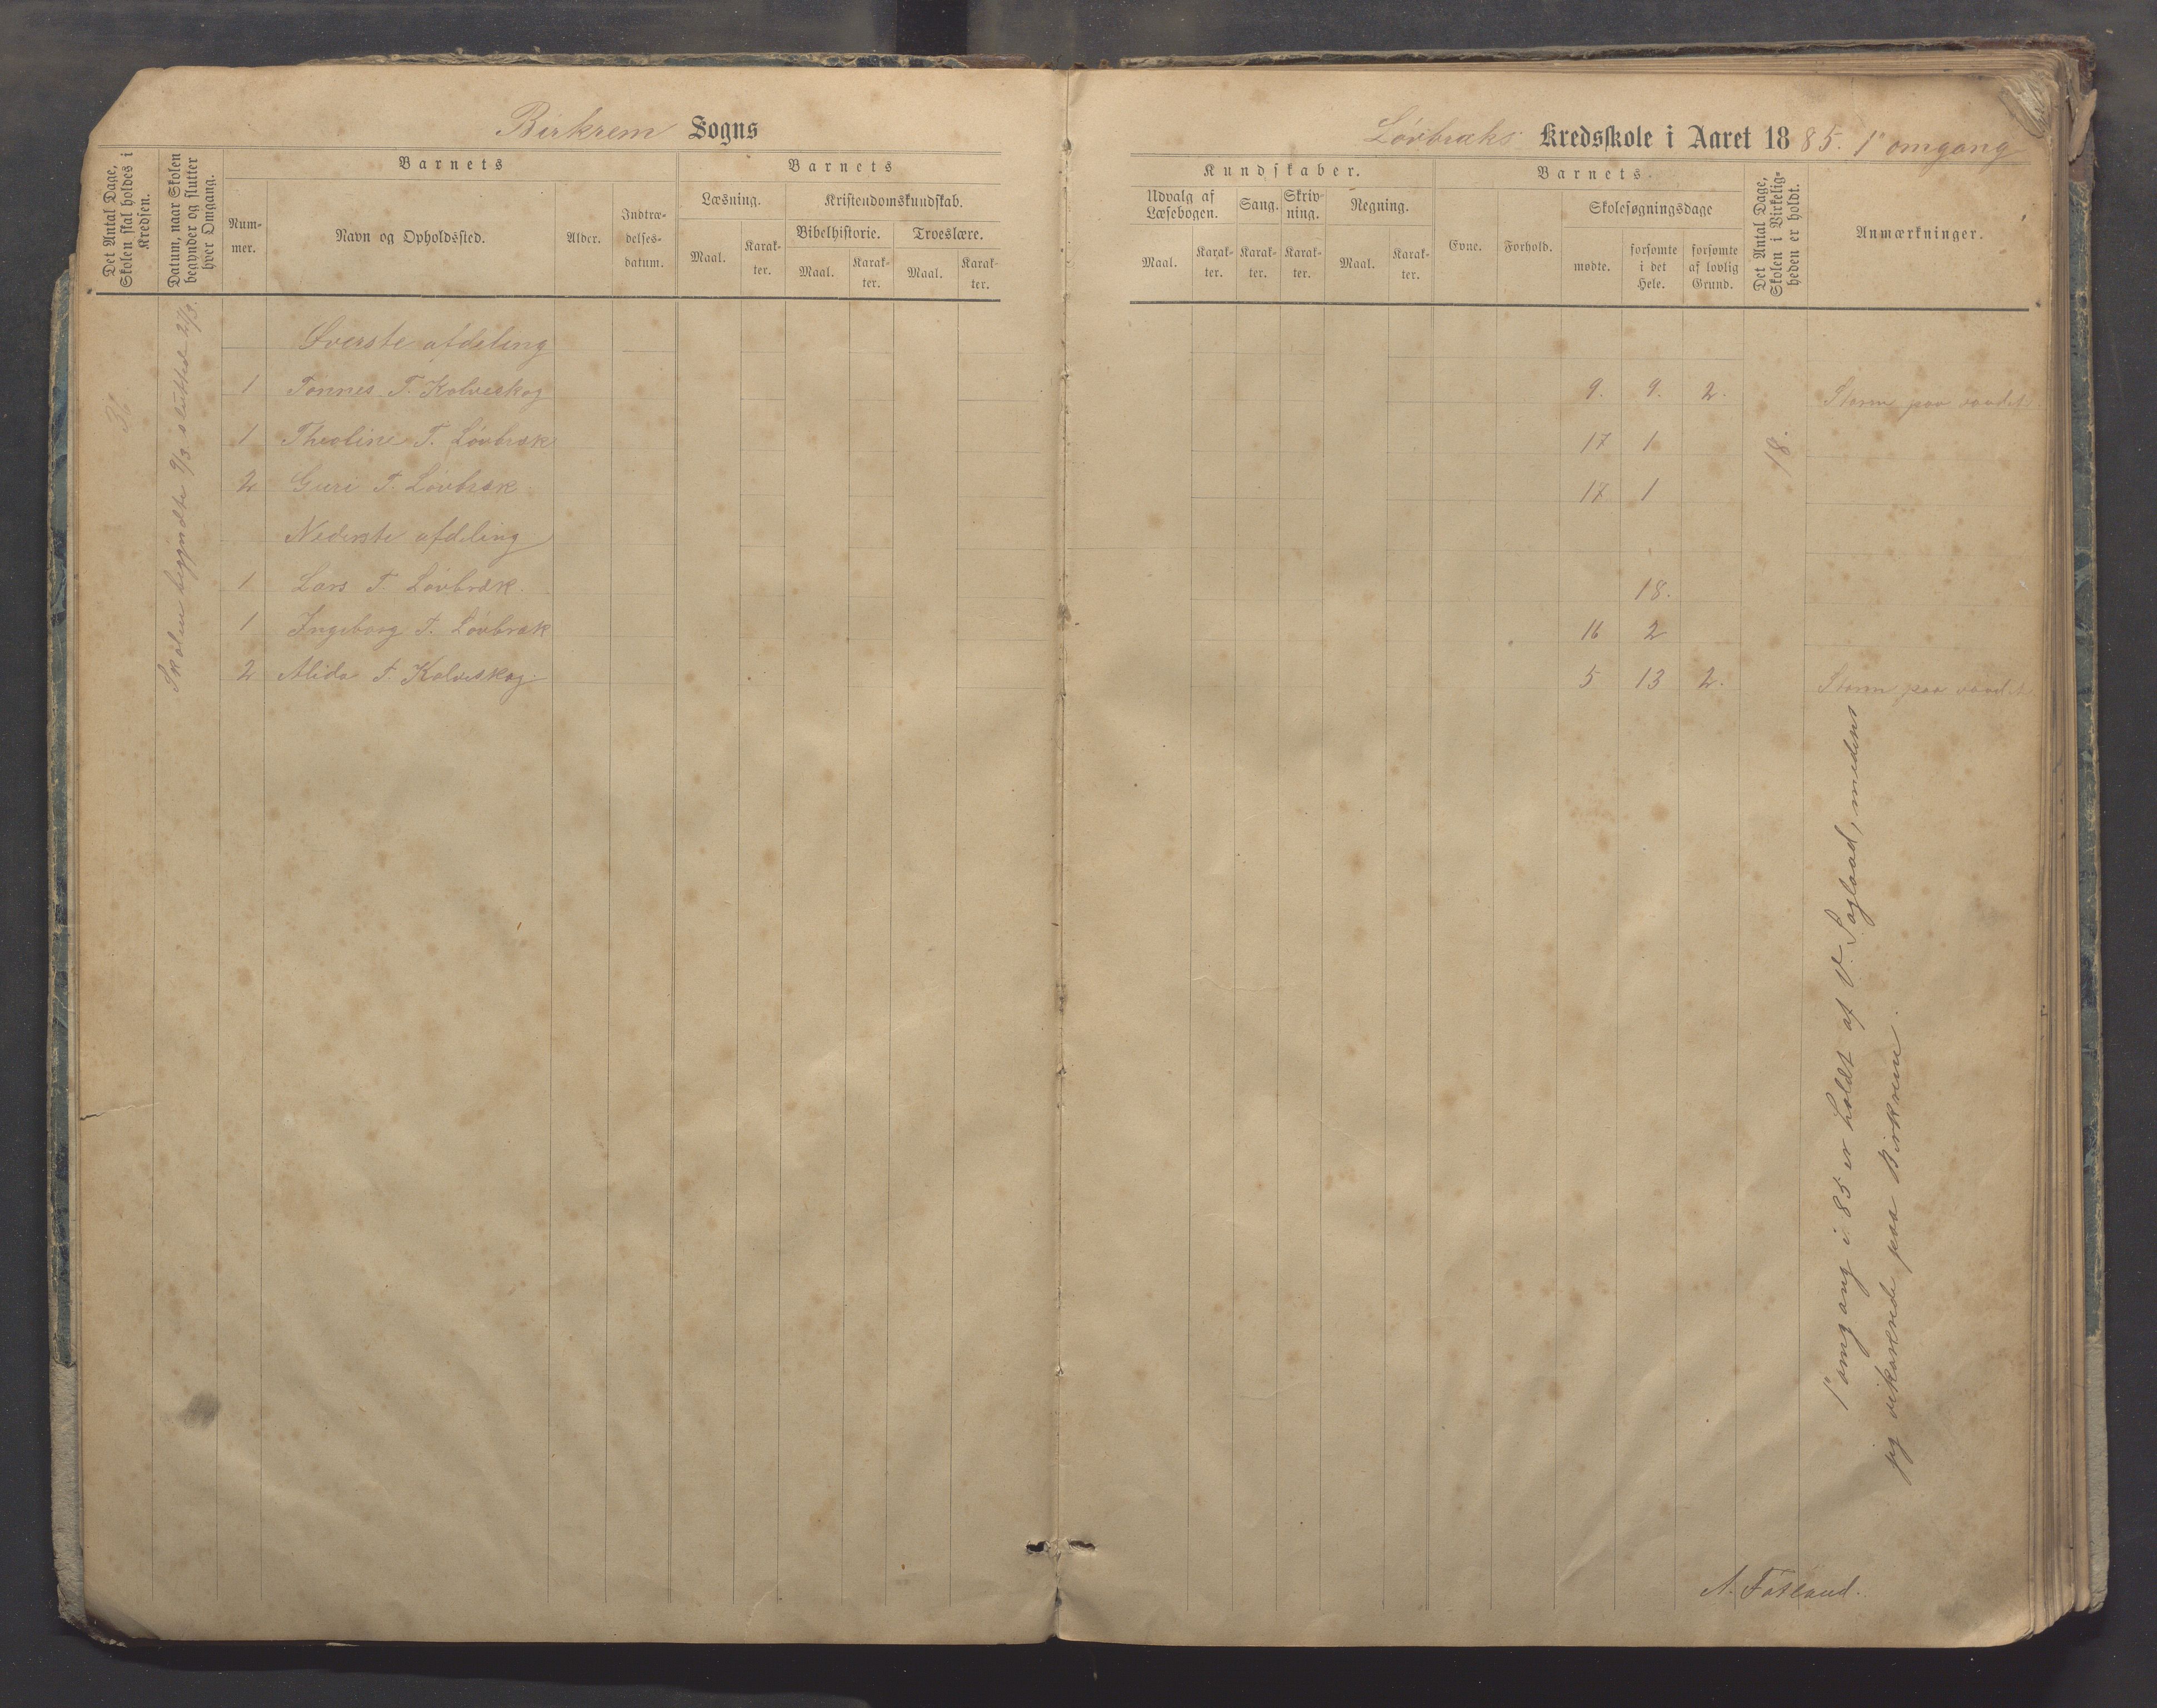 Birkrem Sogns
Det Antal Dage, Skolen skal holdes i Kredsen.
Datum, naar Skolen begynder og slutter hver Omgang.
Barnets
Nummer.
Navn og Opholdssted.
Alder.
Indtrædelsesdatum.
Barnets
Læsning.
Maal.
Karakter.
Kristendomskundskab.
Bibelhistorie.
Maal.
Karakter.
Troeslære.
Maal.
Karakter.
36
Skolen begyndte 9/3 sluttet 28/3.
Øverste afdeling
1 Tønnes T. Kolveskog
1 Theoline T. Løvbræk
2 Guri T. Løvbræk
Nederste afdeling
1 Lars T. Løvbræk.
1 Ingeborg T. Løvbræk
2 Alida T. Kolveskog.
Løvbræks Kredsskole i Aaret 1885. 1ª omgang
Kundskaber.
Udvalg af Læsebogen.
Maal.
Karakter.
Sang.
Karakter.
Skrivning.
Karakter.
Regning.
Maal.
Karakter.
Barnets
Evne.
Forhold.
Skolesøgningsdage
mødte.
forsømte i det Hele.
forsømte af lovlig Grund.
Det Antal Dage, Skolen i Virkeligheden er holdt.
Anmærkninger.
9. 9. 2. Storm paa vandet.
17 1
18.
17 1
18.
16 2
5 13 2. Storm paa vandet
1ª omgang i 85 er holdt af V. Sagland, medens
jeg vikarierede paa Birkrem.
A. Fotland.